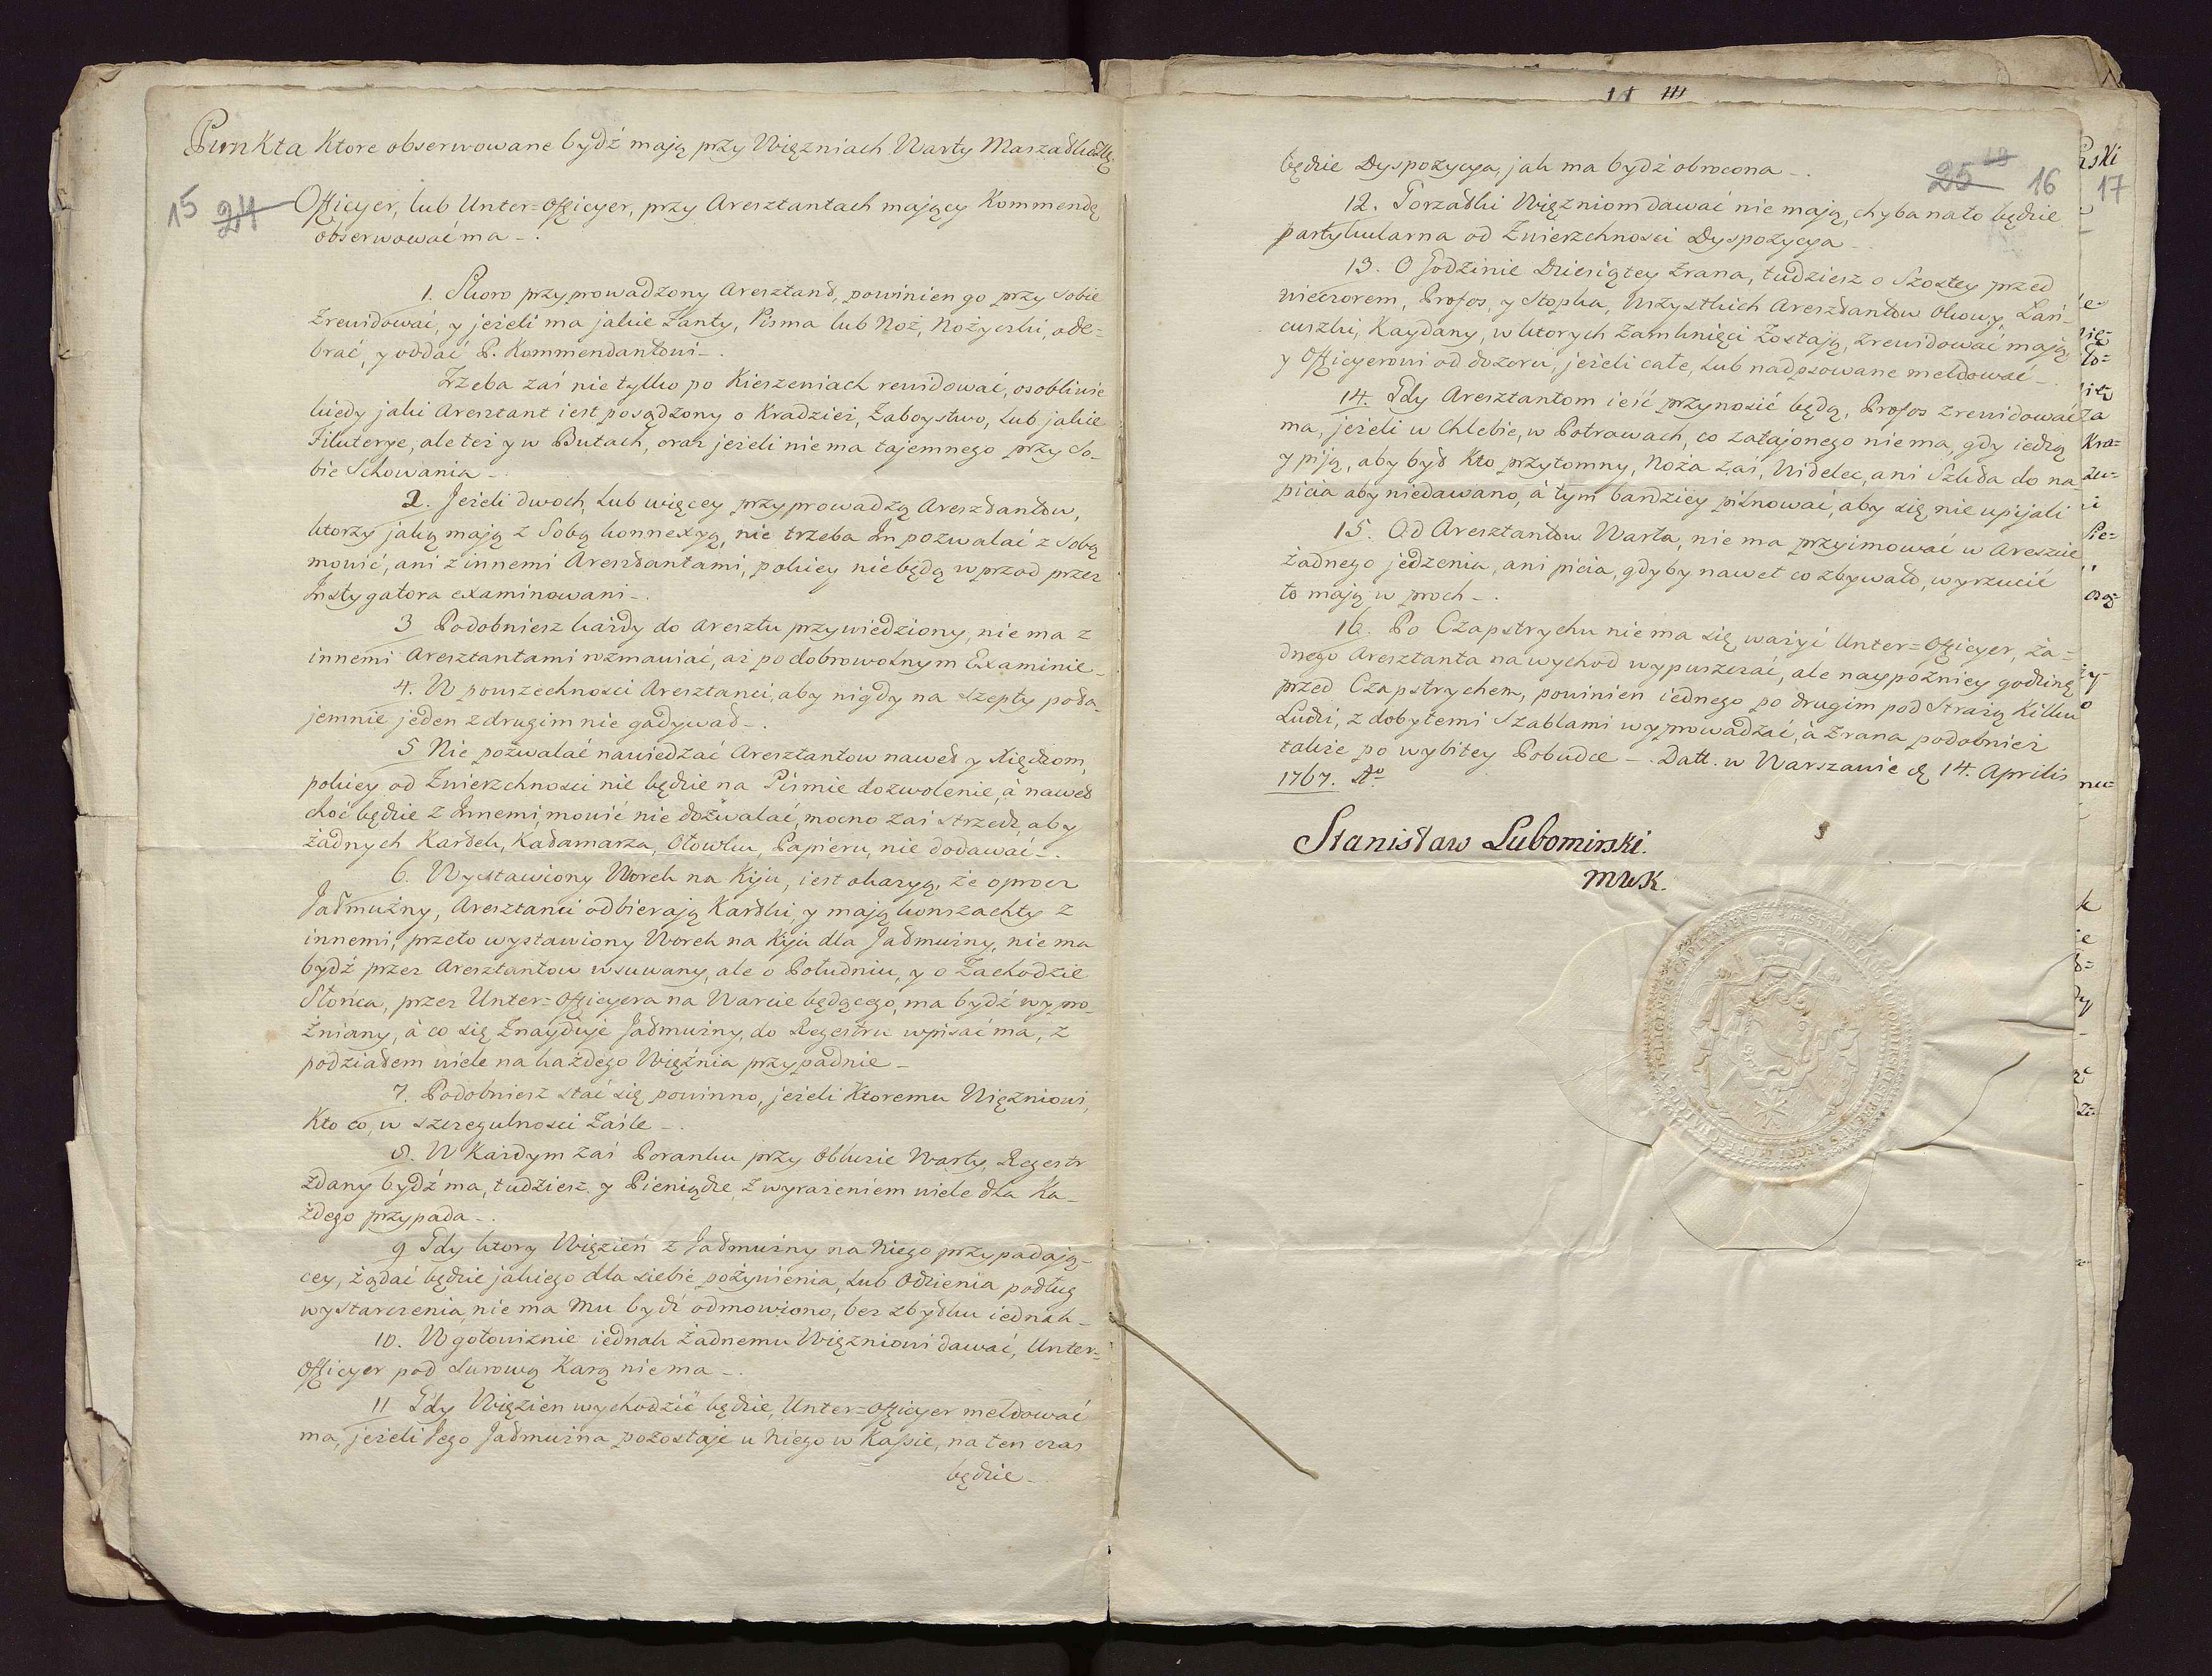 Punkta Ktore obserwowane bydź mają przy Więzniach Warty
15 24
Officyer, lub Unter=Officyer, przy Aresztantach mający Kommendę
obserwować ma _ .
1. Skoro przyprowadzony Aresztant, powinien go przy sobie
zrewidować, y jeżeli ma jakie Fanty, Pisma lub Noż, Nożyczki, ode=
brać, y oddać P. Kommendantowi _ .
Trzeba zaś nie tylko po Kieszeniach rewidować, osobliwie
kiedy jaki Aresztant iest posądzony o Kradzież, Zaboystwo, lub jakie
Filuterye, ale też y w Butach, oraz jeżeli nie ma tajemnego przy so-
bie Schowania _
2. Jeżeli dwoch, lub więcey przyprowadzą Aresztantow,
ktorzy jaką mają z Sobą konnexyą, nie trzeba Im pozwalać z Sobą
mowić, ani z innemi Aresztantami, pokiey niebędą wprzod przez
Instygatora examinowani _ .
3 Podobniesz każdy do Aresztu przywiedziony, nie ma z
innemi Aresztantami rozmawiać, aż po dobrowolnym Examinie _
4. W powszechności Aresztanci, aby nigdy na szepty pota-
jemnie jeden z drugim nie gadywał _ .
5 Nie pozwalać nawiedzać Aresztantow nawet y Xiędzom,
pokiey od Zwierzchności nie będzie na Piśmie dozwolenie, à nawet
choć będzie z Innemi, mowić nie dozwalać, mocno zaś strzedz, aby
żadnych Kartek, Kałamarza, Ołowku, Papieru, nie dodawać _ .
6. Wystawiony Worek na Kiju, iest okazyą, że oprocz
Jałmużny, Aresztanci odbierają Kartki, y mają konszachty z
innemi, przeto wystawiony Worek na Kiju dla Jałmużny, nie ma
bydź przez Aresztantow wsuwany, ale o Południu, y o Zachodzie
Słońca, przez Unter=Officyera na Warcie będącego, ma bydź wypro-
żniany, à co się znayduje Jałmużny, do Regestru wpisać ma, z
podziałem wiele na każdego Więźnia przypadnie _
7. Podobniesz stać się powinno, jeżeli Ktoremu Więzniowi,
Kto co, w szczegulności Zaśle _ .
8. W Każdym zaś Poranku przy Obluzie Warty, Regestr
zdany bydź ma, tudziesz y Pieniądze, z wyrażeniem wiele dla Ka-
żdego przypada _ .
9 Gdy ktory Więzień z Jałmużny na Niego przypadają-
cey, żądać będzie jakiego dla siebie pożywienia, lub Odzienia podług
wystarczenia, nie ma Mu bydź odmowiono, bez zbytku iednak _
10. W gotowiznie iednak żadnemu Więzniowi dawać, Unter=
Officyer pod surową Karą nie ma _ .
11 Gdy Więzien wychodzić będzie, Unter=Officyer meldować
ma, jeżeli Jego Jałmużna pozostaje u Niego w Kassie, na ten czas
będzie _
25 16
17
będzie Dyspozycya, jak ma bydź obrocona _ .
12. Gorzałki Więzniom dawać nie mają, chyba na to będzie
partykularna od Zwierzchności Dyspozycya _
13. O Godzinie Dziesiątey zrana, tudziesz o Szostey przed
wieczorem, Profos, y Stopka, Wszystkich Aresztantow Okowy, Łań-
cuszki, Kaydany, w ktorych Zamknięci zostają, zrewidować mają
y Officyerowi od dozoru, jeżeli całe, lub nadpsowane meldować _ .
14. Gdy Aresztantom ieść przynosić będą, Profos zrewidować
ma, jeżeli w Chlebie, w Potrawach, co zatajonego nie ma, gdy iedzą
y piją, aby był Kto przytomny, Noża zaś, Widelec, ani Szkła do na-
picia aby niedawano, à tym bardziey pilnować, aby się nie upijali
15. Od Aresztantow Warta, nie ma przyimować w Areszcie
żadnego jedzenia, ani picia, gdyby nawet co zbywało, wyrzucić
to mają w proch _ .
16. Po Czapstrychu nie ma się ważyć Unter=Officyer, ża=
dnego Aresztanta na wychod wypuszczać, ale naypóżniey godzinę
przed Czapstrychem, powinien iednego po drugim pod Strażą Kilku
Ludzi, z dobytemi Szablami wyprowadzać, à zrana podobnież
także po wybitey Pobudce _ . Datt. w Warszawie 14. Aprilis
1767. Ao
Stanisław Lubomirski.
MWK.